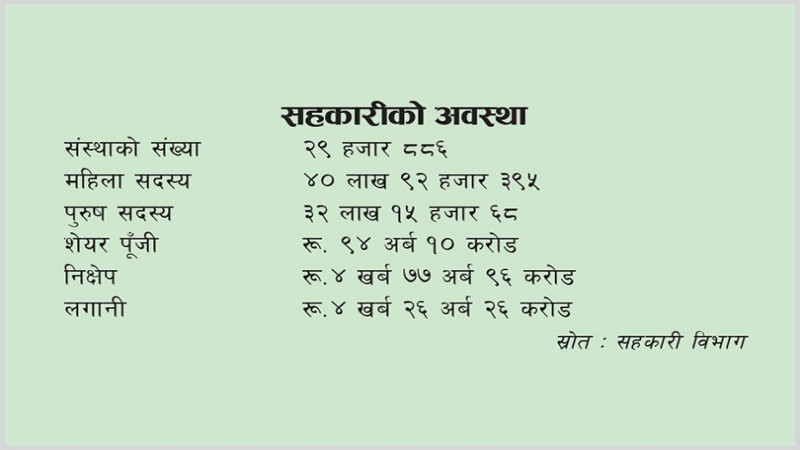 सहकारीको अवस्था
संस्थाको संख्या २९ हजार ८८६
महिला सदस्य ४० लाख ९२ हजार ३९५
पुरुष सदस्य ३२ लाख १५ हजार ६८
शेयर पूँजी रू. ९४ अर्ब १० करोड
निक्षेप रू.४ खर्ब ७७ अर्ब ९६ करोड
लगानी रू.४ खर्ब २६ अर्ब २६ करोड
स्रोत : सहकारी विभाग